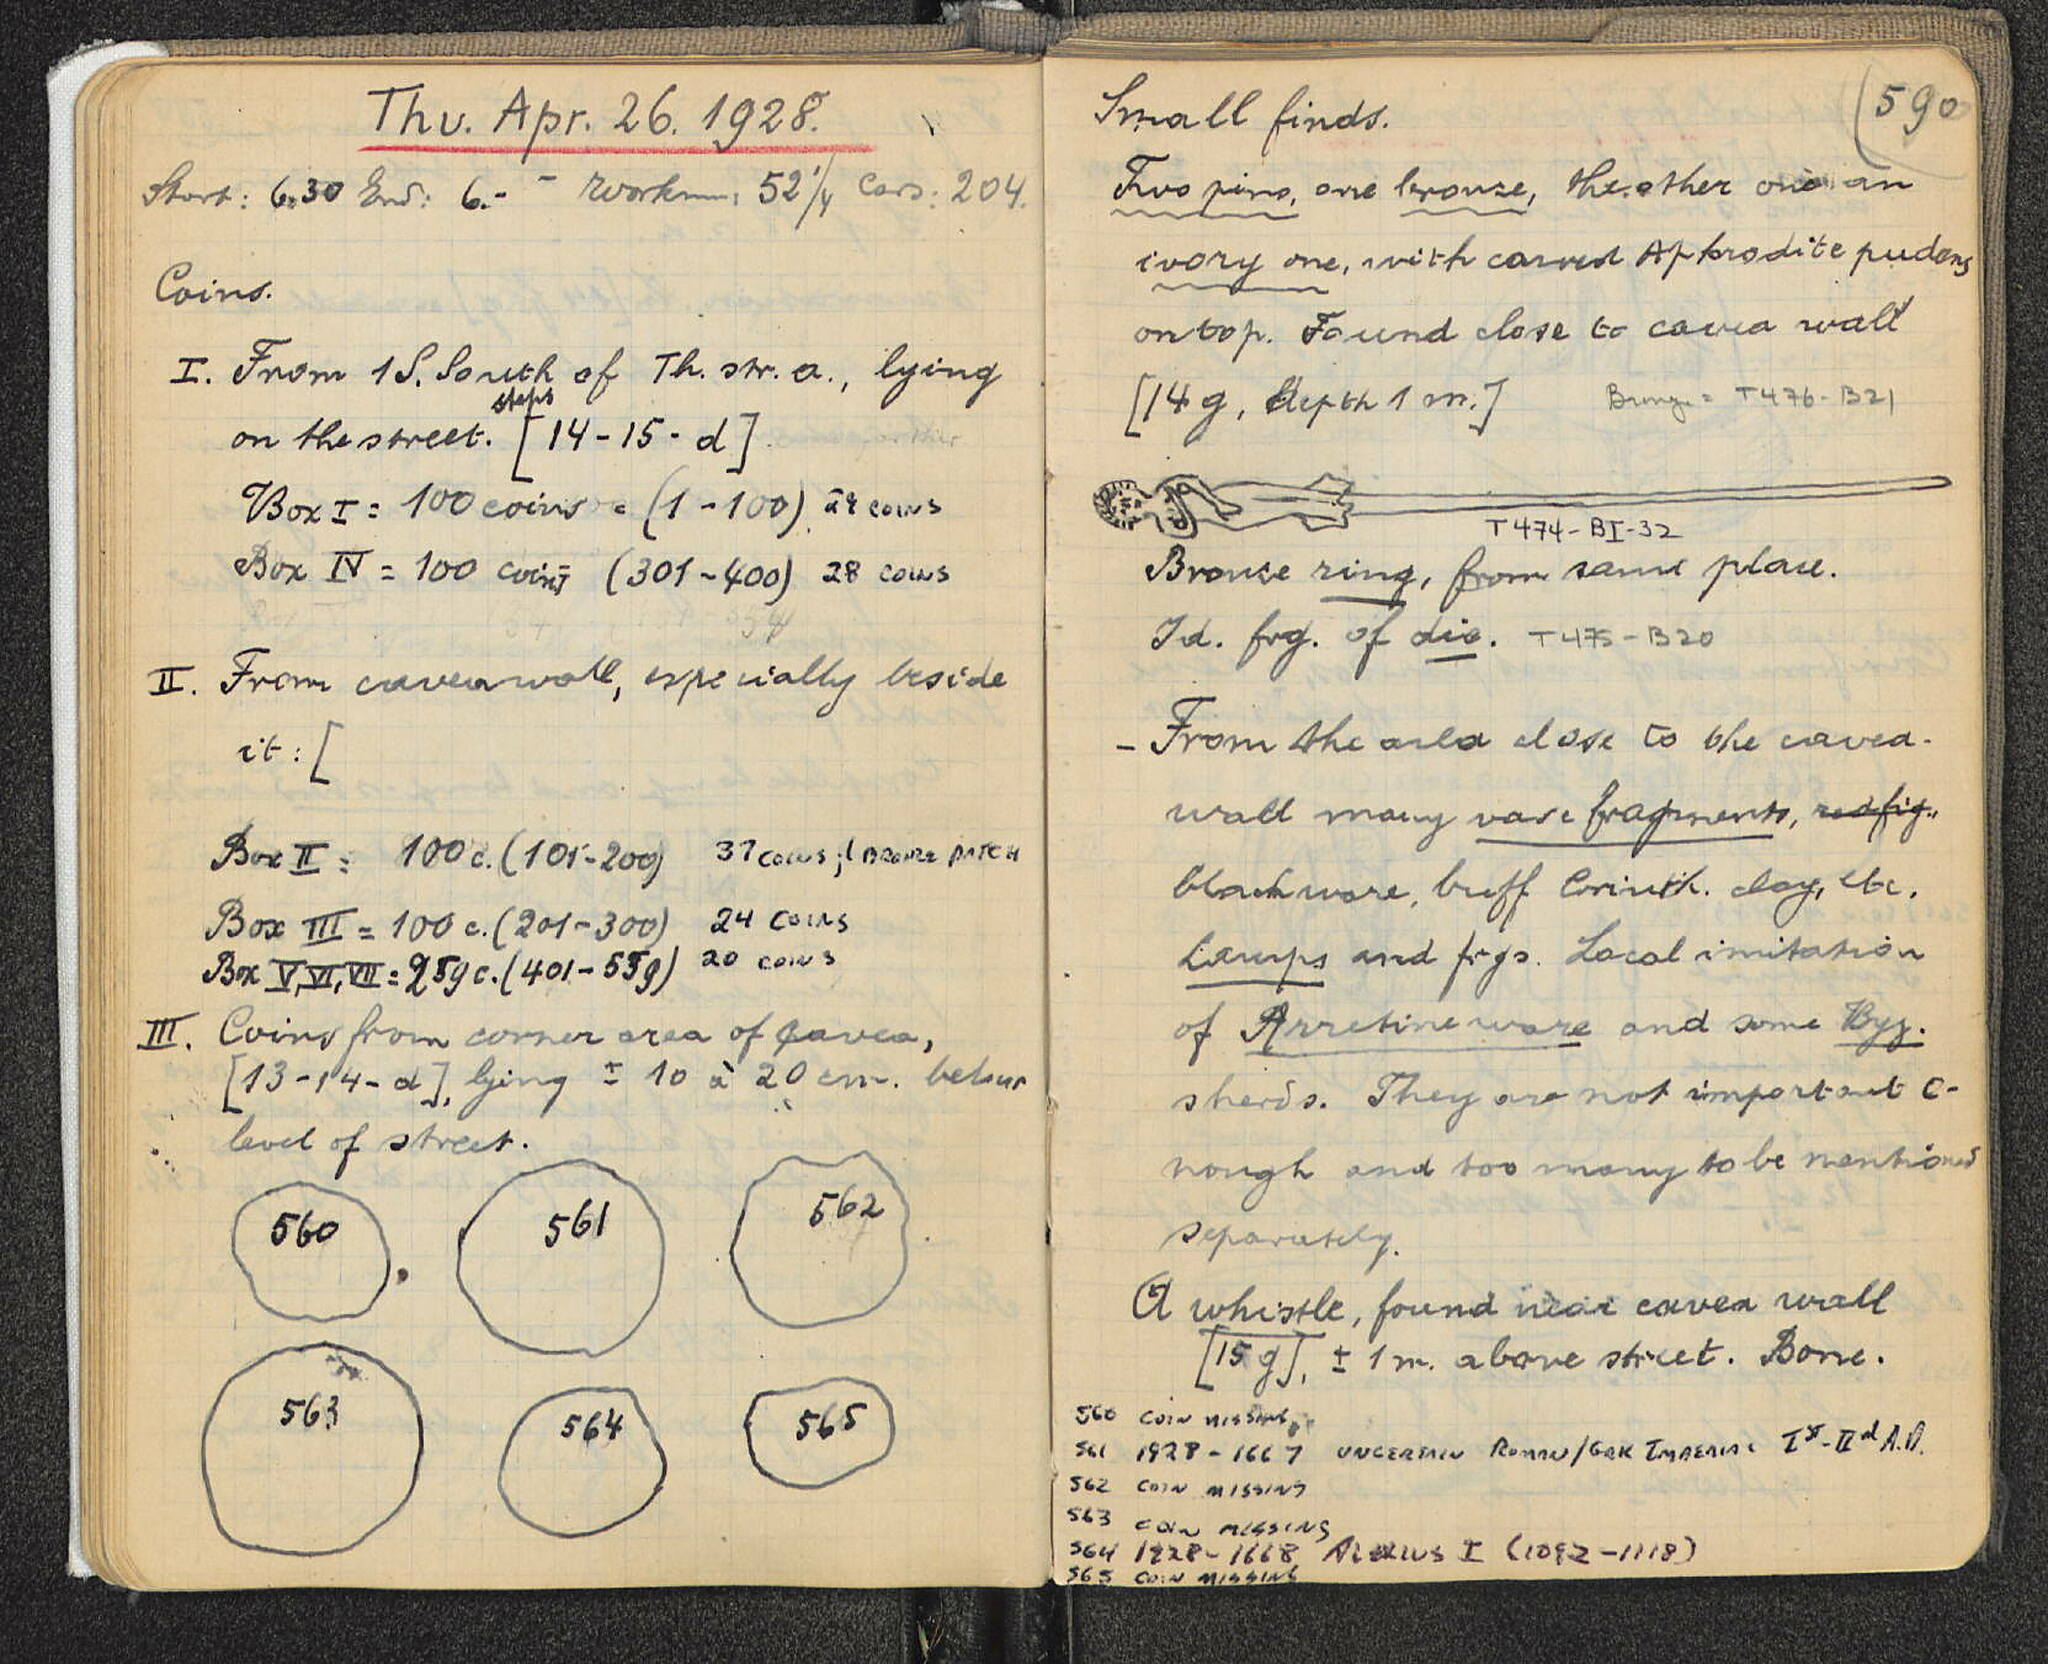 Thu. Apr. 26. 1928.
Start: 6.30 End: 6.- - Workmen: 52 1/4 Cars: 204.
Coins.
I. From 1 S. South of Th. str. a., lying
steps
on the street. [14-15-d].
Box I = 100 coins = (1-100). 28 coins
Box IV = 100 coins (301-400) 28 coins
II. From cavea wall, especially beside
it: [
Box II = 100 c. (101-200) 37 coins; 1 BRONZE PATCH
Box III = 100 c. (201-300) 24 COINS
Box V, VI, VII = 259 c. (401-559) 20 coins
III. Coins from corner area of cavea,
[13-14-d], lying ± 10 à 20 cm. below
level of street.
560 561 562
563 564 565
590
Small finds.
Two pins, one bronze, the other one an
ivory one, with carved Aphrodite pudens
on top. Found close to cavea wall
[14 g, depth 1 m.] Bronze = T476-B21
T474-BI-32
Bronze ring, from same place.
Id. frg. of die. T475-B20
- From the area close to the cavea-
wall many vase fragments, redfig.,
black ware, buff Corinth. clay, etc.
Lamps and frgs. Local imitation
of Arretine ware and some Byz.
sherds. They are not important e-
nough and too many to be mentioned
separately.
A whistle, found near cavea wall
[15 g], ± 1 m. above street. Bone.
560 COIN MISSING
561 1928-1667 UNCERTAIN ROMAN/GRK IMPERIAL Ist-IInd A.D.
562 COIN MISSING
563 COIN MISSING
564 1928-1668 ALEXIUS I (1092-1118)
565 COIN MISSING